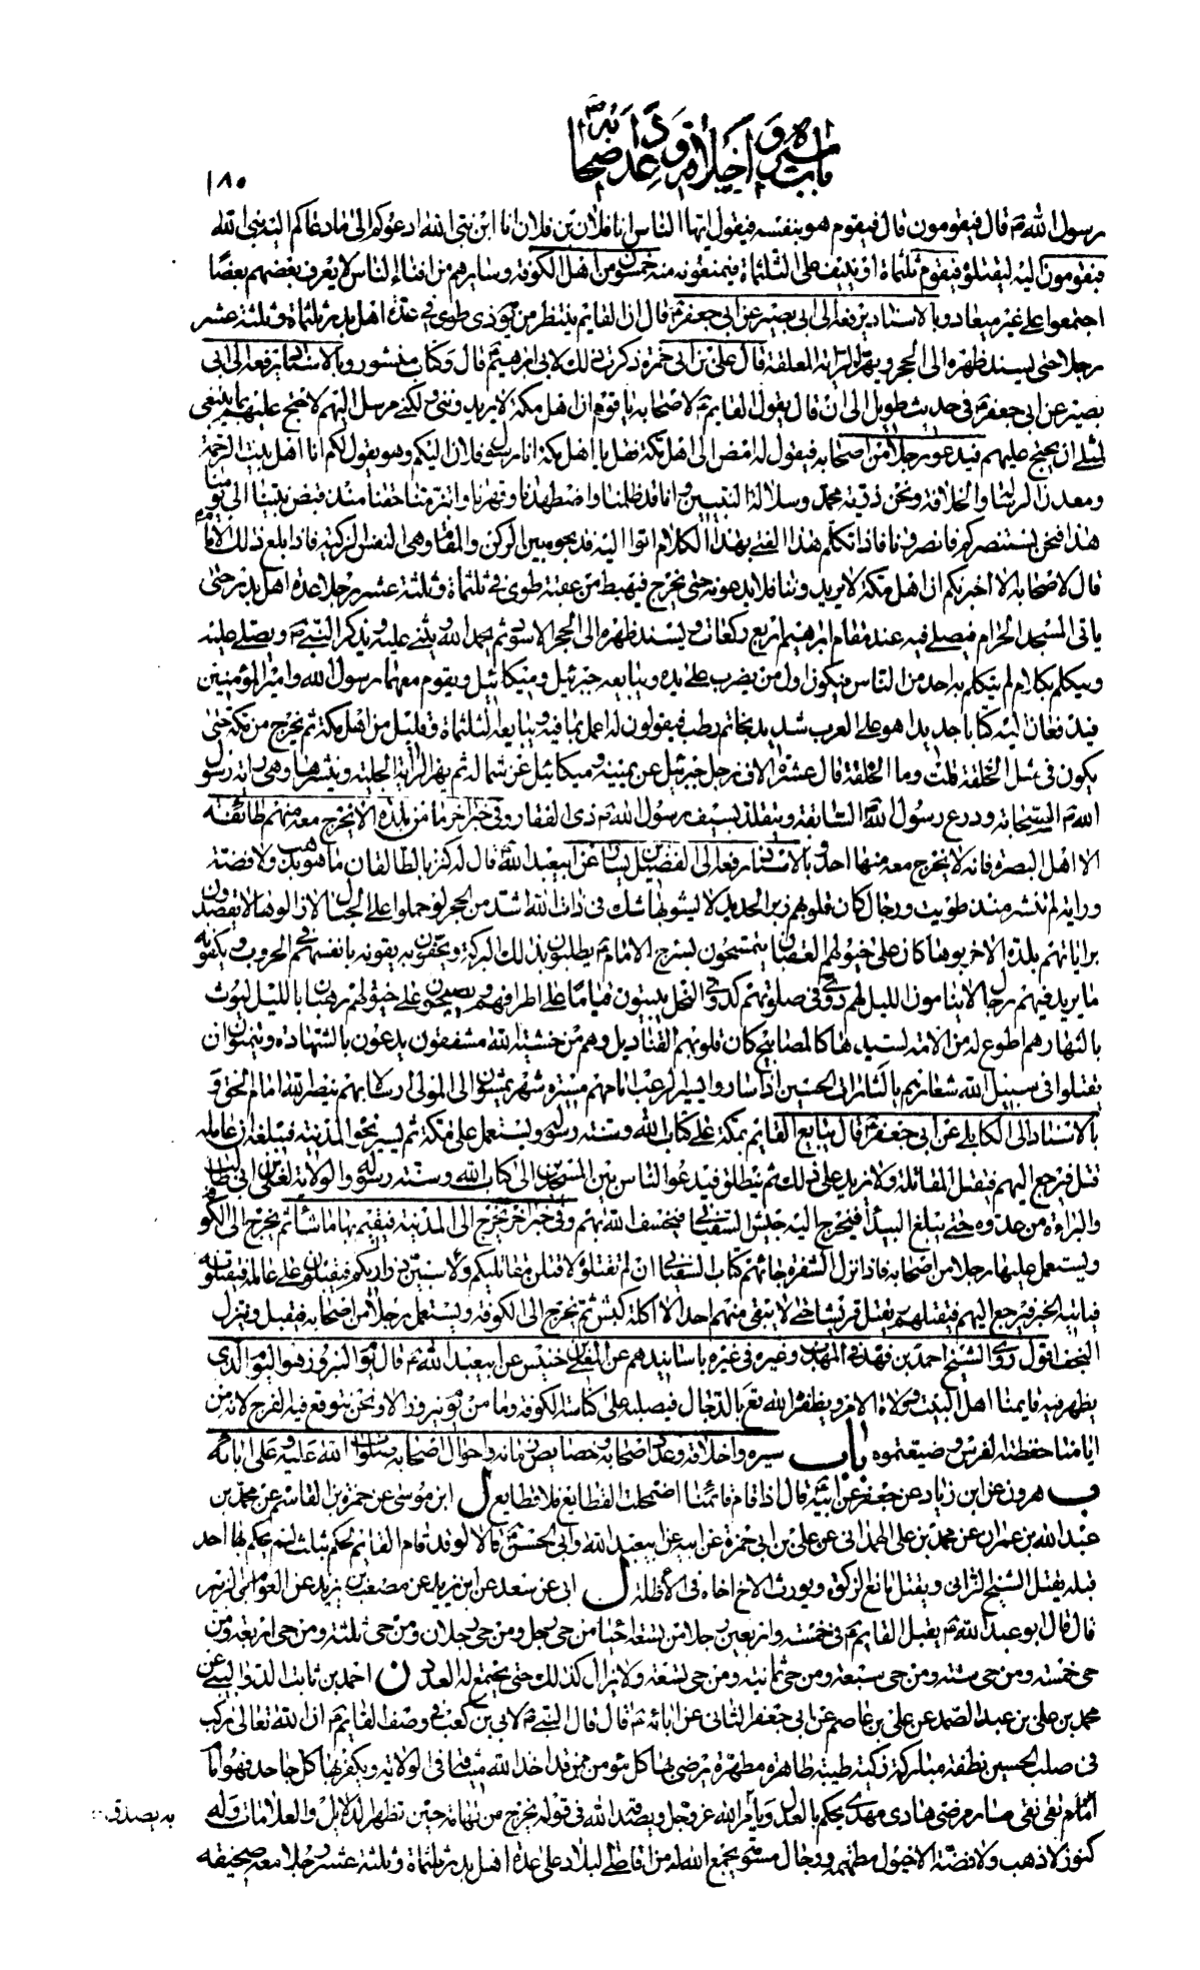 باب سيره و اخلاقه و عدد اصحابه
١٨٥
رسول الله ص قال فيقومون قال فيقوم هو بنفسه فيقول ايها الناس انا فلان بن فلان انا ابن نبى الله ادعوكم الى ما دعاكم اليه نبى الله
فيقومون اليه ليقتلوه فيقوم ثلثمائة او ينيف على الثلثمائة فيمنعونه منه خمسون من اهل الكوفة و سايرهم من افناء الناس لا يعرف بعضهم بعضا
اجتمعوا على غير ميعاد و بالاسناد يرفعه الى ابى بصير عن ابى جعفر ع قال ان القايم ينتظر من يومه ذى طوى فى عدة اهل بدر ثلثمائة و ثلثة عشر
رجلا حتى يسند ظهره الى الحجر و يهز الراية المعلقة قال على بن ابى حمزة ذكرت ذلك لابى ابرهيم ع قال و كتاب منشور و بالاسناد يرفعه الى ابى
بصير عن ابى جعفر ع فى حديث طويل الى ان قال يقول القايم ع لاصحابه يا قوم ان اهل مكة لا يريدوننى و لكنى مرسل اليهم لاحتج عليهم بما ينبغى
لمثلى ان يحتج عليهم فيدعو رجلا من اصحابه فيقول له امض الى اهل مكة فقل يا اهل مكة انا رسول فلان اليكم و هو يقول لكم انا اهل بيت الرحمة
و معدن الرسالة و الخلافة و نحن ذرية محمد و سلالة النبيين و انا قد ظلمنا و اضطهدنا و قهرنا و ابتز منا حقنا منذ قبض نبينا الى يومنا
هذا فنحن نستنصركم فانصرونا فاذا تكلم هذا الفتى بهذا الكلام اتوا اليه فذبحوه بين الركن و المقام و هى النفس الزكية فاذا بلغ ذلك الامام
قال لاصحابه الا اخبرتكم ان اهل مكة لا يريدوننا فلا يدعونه حتى يخرج فيهبط من عقبة طوى فى ثلثمائة و ثلثة عشر رجلا عدة اهل بدر حتى
ياتى المسجد الحرام فيصلى فيه عند مقام ابرهيم اربع ركعات و يسند ظهره الى الحجر الاسود ثم يحمد الله و يثنى عليه و يذكر النبى ص و يصلى عليه
و يتكلم بكلام لم يتكلم به احد من الناس فيكون اول من يضرب على يده و يبايعه جبرئيل و ميكائيل و يقوم معهما رسول الله و امير المؤمنين
فيدفعان اليه كتابا جديدا هو على العرب شديد بخاتم رطب فيقولون له اعمل بما فيه و يبايعه الثلثمائة و قليل من اهل مكة ثم يخرج من مكة حتى
يكون فى مثل الحلقة قلت و ما الحلقة قال عشرة الاف رجل جبرئيل عن يمينه و ميكائيل عن شماله ثم يهز الراية الجلية و ينشرها و هى راية رسول
الله ص السحابة و درع رسول الله ص السابغة و يتقلد بسيف رسول الله ص ذى الفقار و فى خبر اخر ما من بلدة الا يخرج معه منهم طائفة
الا اهل البصرة فانه لا يخرج معه منها احد و بالاسناد رفعه الى الفضيل بن يسار عن ابيعبد الله ع قال له كنز بالطالقان ما هو بذهب و لا فضة
و راية لم تنشر منذ طويت و رجال كان قلوبهم زبر الحديد لا يشوبها شك فى ذات الله اشد من الحجر لو حملوا على الجبال لازالوها لا يقصدون
براياتهم بلدة الا خربوها كان على خيولهم العقبان يتمسحون بسرج الامام ع يطلبون بذلك البركة و يحفون به يقونه بانفسهم فى الحروب و يكفونه
ما يريد فيهم رجال لا ينامون الليل لهم دوى فى صلوتهم كدوى النحل يبيتون قياما على اطرافهم و يصبحون على خيولهم رهبان بالليل ليوث
بالنهار هم اطوع له من الامة لسيدها كالمصابيح كان قلوبهم القناديل و هم من خشية الله مشفقون يدعون بالشهادة و يتمنون ان
يقتلوا فى سبيل الله شعارهم يا لثارات الحسين اذا ساروا يسير الرعب امامهم مسيرة شهر يمشون الى المولى ارسالا بهم ينصر الله امام الحق و
بالاسناد الى الكابلى عن ابى جعفر ع قال يبايع القايم بمكة على كتاب الله و سنة رسوله و يستعمل على مكة ثم يسير نحو المدينة فيبلغه ان عامله
قتل فيرجع اليهم فيقتل المقاتلة و لا يزيد على ذلك ثم ينطلق فيدعو الناس بين المسجدين الى كتاب الله و سنة رسوله و الولاية لعلى بن ابى طالب
و البراءة من عدوه حتى يبلغ البيداء فيخرج اليه جيش السفيانى فيخسف الله بهم و فى خبر اخر يخرج الى المدينة فيقيم بها ما شاء ثم يخرج الى الكوفة
و يستعمل عليها رجلا من اصحابه فاذا نزل الشفرة جائهم كتاب السفيانى ان لم تقتلوه لاقتلن مقاتليكم و لاسبين ذراريكم فيقبلون على عامله فيقتلونه
فياتيه الخبر فيرجع اليهم فيقتلهم و يقتل قريشا حتى لا يبقى منهم احد الا اكلة كبش ثم يخرج الى الكوفة و يستعمل رجلا من اصحابه فيقبل و ينزل
النجف اقول روى الشيخ احمد بن فهد فى المهذب و غيره فى غيره باسانيدهم عن المعلى بن خنيس عن ابيعبد الله ع قال يوم النيروز هو اليوم الذى
يظهر فيه قايمنا اهل البيت و ولاة الامر و يظفره الله تع بالدجال فيصلبه على كناسة الكوفة و ما من يوم نيروز الا و نحن نتوقع فيه الفرج لانه من
ايامنا حفظته الفرس و ضيعتموه باب سيره و اخلاقه و عدد اصحابه و خصايص زمانه و احوال اصحابه صلوات الله عليه و على ابائه
ب هرون عن ابن زياد عن جعفر عن ابيه ع قال اذا قام قائمنا اضمحلت القطايع فلا قطايع ل ابن موسى عن حمزة بن القاسم عن محمد بن
عبد الله بن عمران عن محمد بن على الهمدانى عن على بن ابى حمزة عن ابيه عن ابيعبد الله و ابى الحسن ع قالا لو قد قام القايم لحكم بثلث لم يحكم بها احد
قبله يقتل الشيخ الزانى و يقتل مانع الزكوة و يورث الاخ اخاه فى الاظلة ل ابى عن سعد عن ابن يزيد عن مصعب بن يزيد عن العوام بن الزبير
قال قال ابو عبد الله ع يقبل القايم ع فى خمسة و اربعين رجلا من تسعة احياء من حى رجل و من حى رجلان و من حى ثلثة و من حى اربعة و من
حى خمسة و من حى ستة و من حى سبعة و من حى ثمانية و من حى تسعة و لا يزال كذلك حتى يجتمع له العدد ن احمد بن ثابت الدواليبى عن
محمد بن على بن عبد الصمد عن على بن عاصم عن ابى جعفر الثانى عن ابائه ع قال قال النبى ص لابى بن كعب فى وصف القايم ع ان الله تعالى ركب
فى صلب الحسين نطفة مباركة زكية طيبة طاهرة مطهرة يرضى بها كل مؤمن ممن قد اخذ الله ميثاقه فى الولاية و يكفر بها كل جاحد فهو امام
تقى نقى سار مرضى هادى مهدى يحكم بالعدل و يامر به يصدق الله عز و جل و يصدقه الله فى قوله يخرج من تهامة حين تظهر الدلايل و العلامات و له
به يصدق
كنوز لا ذهب و لا فضة الا خيول مطهمة و رجال مسومة يجمع الله له من اقاصى البلاد على عدة اهل بدر ثلثمائة و ثلثة عشر رجلا معه صحيفة